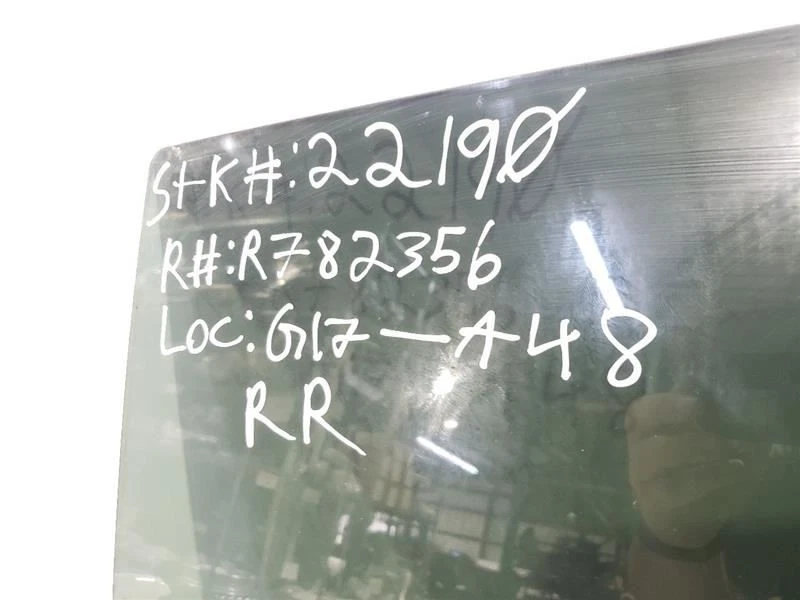 StK#:22190
R#:R782356
LOC:G17-A48
RR